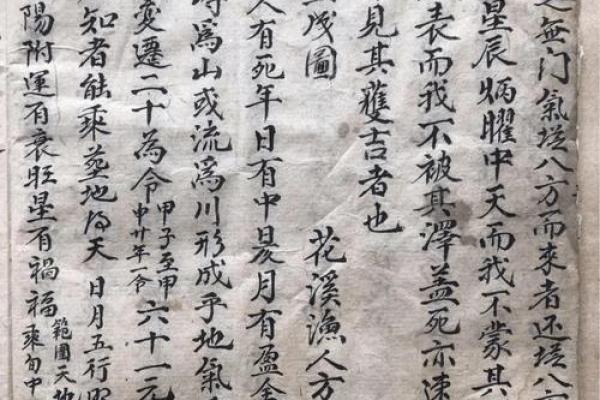 無门氣塋八方而來者还塋八方
星辰炳曜中天而我不蒙其
表而我不被其澤盖死亦速
見其獲吉者也
花溪漁人方
成圖
人有死年日有中昃月有盈
爲山或流爲川形成乎地氣
變遷二十為令甲子至甲申廿年一令六十一元
知者能乘塟地乃天 日月五行
陽附運有衰旺星有禍福範圍天地乘旬中